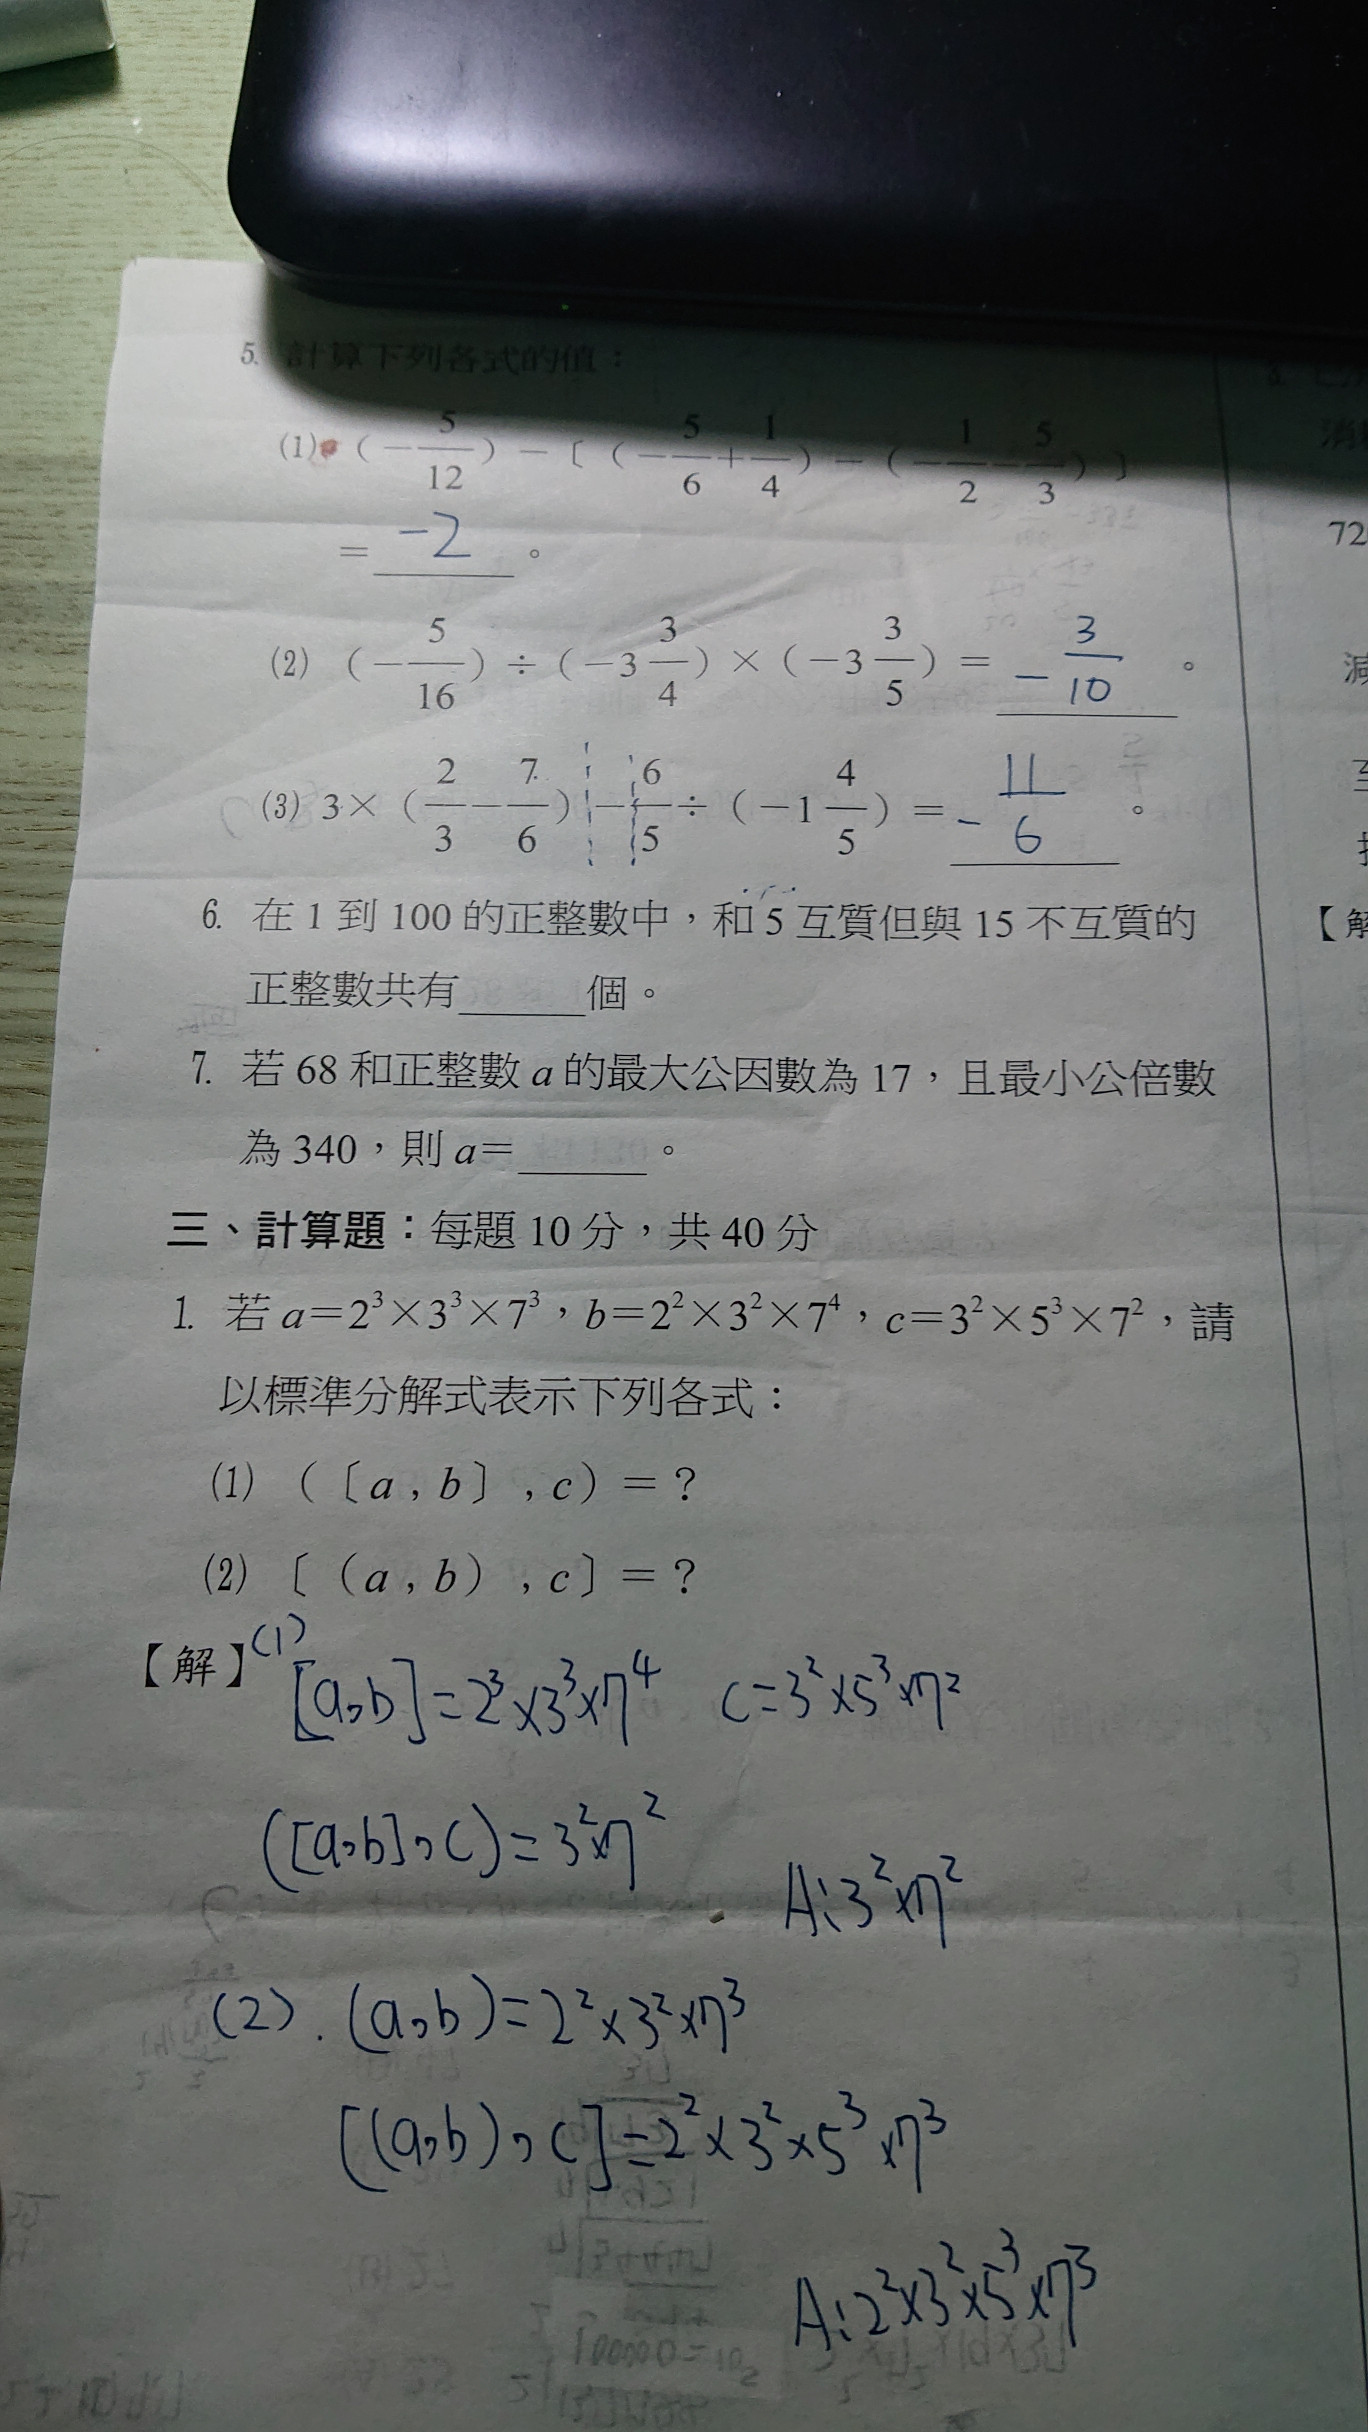 5. 計算下列各式的值：
(1) (－5/12)－〔(－5/6＋1/4)－(－1/2－5/3)〕
＝ -2 。
(2) (－5/16)÷(－3 3/4)×(－3 3/5)＝ -3/10 。
(3) 3×(2/3－7/6)－6/5÷(－1 4/5)＝ -11/6 。
6. 在1到100的正整數中，和5互質但與15不互質的
正整數共有______個。
7. 若68和正整數a的最大公因數為17，且最小公倍數
為340，則a＝______。
三、計算題：每題10分，共40分
1. 若a＝2³×3³×7³，b＝2²×3²×7⁴，c＝3²×5³×7²，請
以標準分解式表示下列各式：
(1) (〔a , b〕, c)＝？
(2) 〔(a , b) , c〕＝？
【解】(1) [a,b]=2³×3³×7⁴ c=3²×5³×7²
([a,b],c)=3²×7²
A:3²×7²
(2). (a,b)=2²×3²×7³
[(a,b),c]=2²×3²×5³×7³
A:2²×3²×5³×7³
72
減
【解